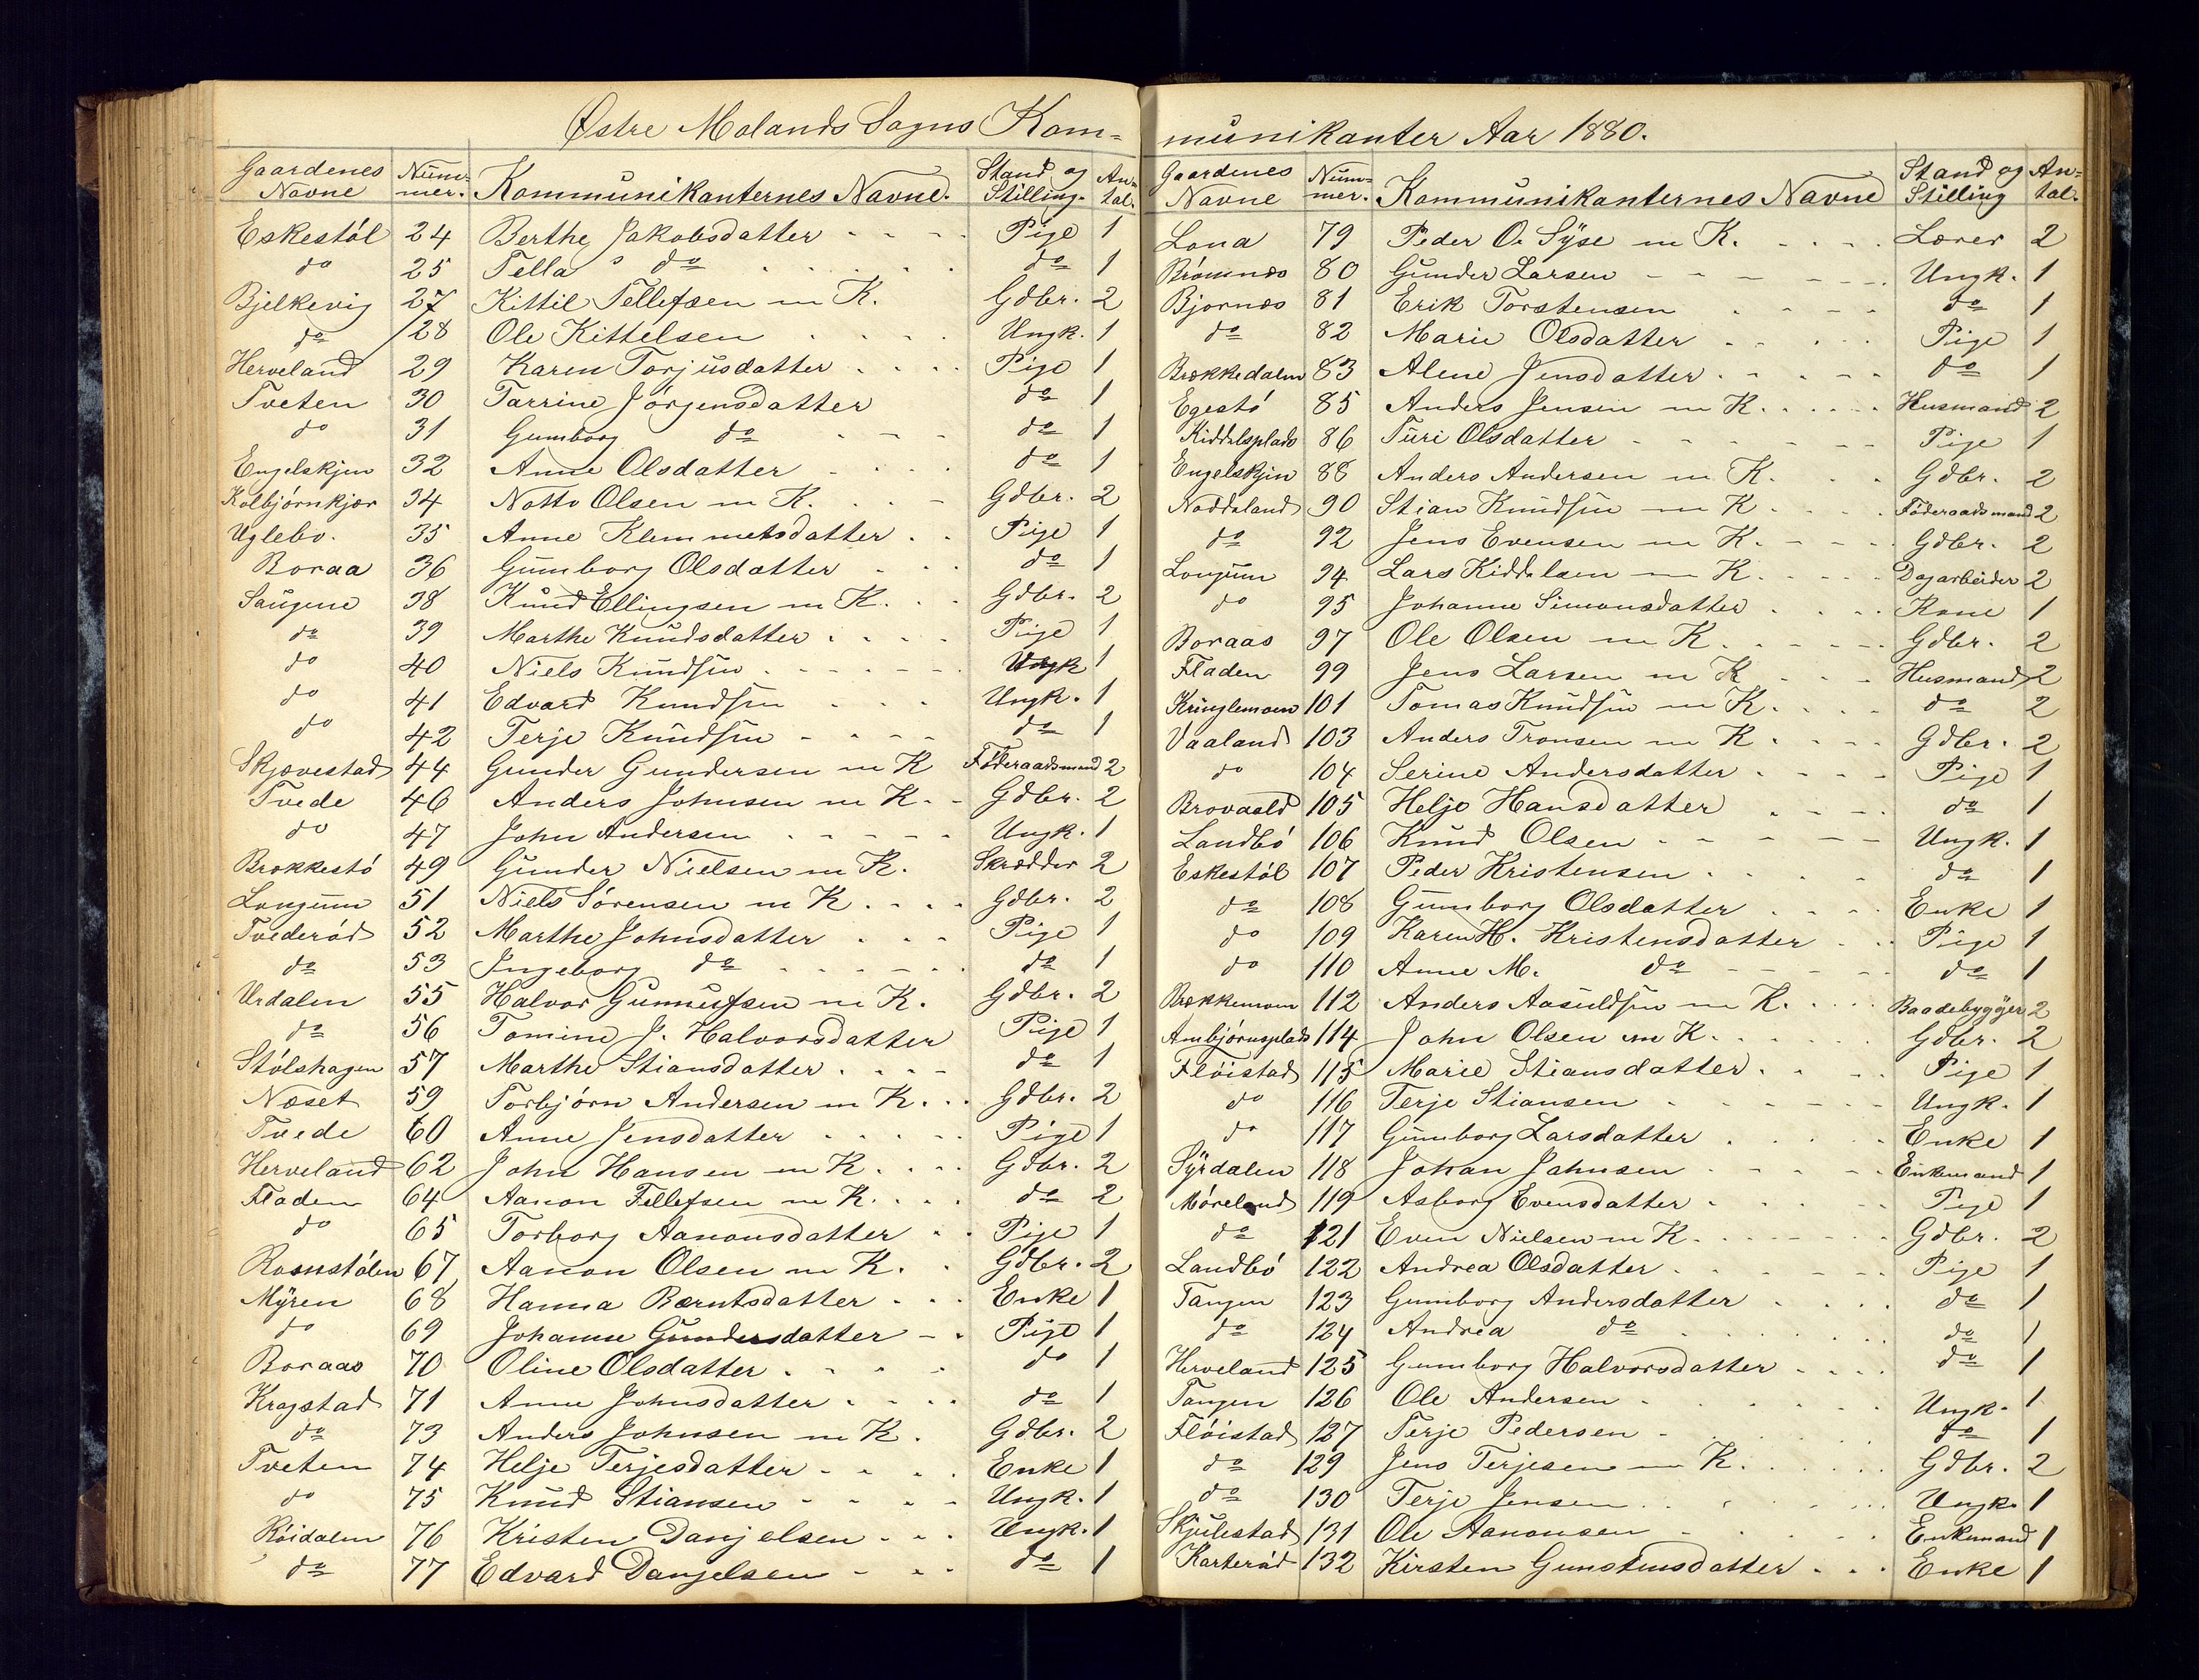 Østre Molands Sogns Kom-
Gaardenes Navne Num-mer. Kommunikanternes Navne. Stand og Stilling. An-tal.
Eskestöl 24 Berthe Jakobsdatter - - - - Pige 1
do 25 Tella do . . . . . . do 1
Bjelkevig 27 Kittil Tellefsen m K. Gdbr. 2
do 28 Ole Kittelsen . . . . Ungk. 1
Herveland 29 Karen Torjusdatter . . . . Pige 1
Tveten 30 Tarrine Jörgensdatter do 1
do 31 Gumborg do - - - do 1
Engelskjen 32 Anne Olsdatter - . . . do 1
Kolbjörnkjær 34 Notto Olsen m K. . . - Gdbr. 2
Uglebo. 35 Anne Klemmetsdatter . . Pige 1
Boraa 36 Gumborg Olsdatter - . . do 1
Saugene 38 Knud Ellingsen m K. . . Gdbr. 2
do 39 Marthe Knudsdatter . . . . Pige 1
do 40 Niels Knudsen . - - - - . Ungk 1
do 41 Edvard Knudsen . . . Ungk. 1
do 42 Terje Knudsen - - - - do 1
Skjævestad 44 Gunder Gundersen m K Föderaadsmand 2
Tvede 46 Anders Johnsen m K. - Gdbr. 2
do 47 John Andersen . - - - - Ungk. 1
Brokkestö 49 Gunder Nielsen m K. Skrædder 2
Longum 51 Niels Sörensen m K . . . . Gdbr. 2
Tvederöd 52 Marthe Johnsdatter . . . Pige 1
do 53 Ingeborg do - - - - - . do 1
Urdalen 55 Halvor Gunnufsen m K. Gdbr. 2
do 56 Tomine J. Halvorsdatter Pige 1
Stölshagen 57 Marthe Stiansdatter . . . - do 1
Næset 59 Torbjörn Andersen m K. . . Gdbr. 2
Tvede 60 Anne Jensdatter . . . . . Pige 1
Herveland 62 John Hansen m K . . . . Gdbr. 2
Fladen 64 Aanon Tellefsen m K. . . . do 2
do 65 Torborg Aanonsdatter . . Pige 1
Rosnstölen 67 Aanon Olsen m K. . Gdbr. 2
Myren 68 Hanna Bærntsdatter . . . Enke 1
do 69 Johanne Gundersdatter - . Pige 1
Boraas 70 Oline Olsdatter . . . . do 1
Kragstad 71 Anne Johnsdatter . . . . do 1
do 73 Anders Johnsen m K . Gdbr. 2
Tveten 74 Helje Terjesdatter - - . . Enke 1
do 75 Knud Stiansen - - - - Ungk. 1
Röidalen 76 Kristen Danjelsen - . . Ungk. 1
do 77 Edvard Danjelsen - - - do 1
munikanter Aar 1880.
Gaardenes Navne Num-mer. Kommunikanternes Navne Stand og Stilling An-tal.
Lona 79 Peder O. Syse m K. . . . Lærer 2
Brömnæs 80 Gunder Larsen - - - - - . Ungk. 1
Bjornæs 81 Erik Torstensen . . . . do 1
do 82 Marie Olsdatter . . . . . Pige 1
Brækkedalen 83 Alene Jensdatter . . - - - do 1
Egestö 85 Anders Jensen m K. . . . . Husmand 2
Kiddelsplads 86 Turi Olsdatter - - - - - - Pige 1
Engelskjen 88 Anders Andersen m K. . . Gdbr. 2
Noddeland 90 Stian Knudsen m K . . . . Föderaadsmand 2
do 92 Jens Evensen m K. - - - Gdbr. 2
Longum 94 Lars Kiddelsen m K. . . . . Dagarbeider 2
do 95 Johanne Simonsdatter . . . . Kone 1
Boraas 97 Ole Olsen m K. . - - - . Gdbr. 2
Fladen 99 Jens Larsen m K - - - Husmand 2
Kringlemoen 101 Tomas Knudsen m K. . . . do 2
Vaaland 103 Anders Tronsen m K . . . . Gdbr. 2
do 104 Serine Andersdatter . . . . Pige 1
Brovaald 105 Helje Hansdatter . - - - do 1
Landbö 106 Knud Olsen - - - - - - Ungk. 1
Eskestöl 107 Peder Kristensen . . . . . do 1
do 108 Gumborg Olsdatter . . . . Enke 1
do 109 Karen H. Kristensdatter - . . Pige 1
do 110 Anne M. do - - - - - do 1
Brækkemoen 112 Anders Aasuldsen m K. . . . Baadebygger 2
Ambjörnsplads 114 John Olsen m K. . . . . . Gdbr. 2
Flöistad 115 Marie Stiansdatter . . . . Pige 1
do 116 Terje Stiansen . . - - - - Ungk. 1
do 117 Gumborg Larsdatter . . . . . Enke 1
Syrdalen 118 Johan Johnsen - - - - . Enkemand 1
Möreland 119 Asborg Evensdatter . . . . . Pige 1
do 121 Even Nielsen m K. - - - - - . Gdbr. 2
Landbö 122 Andrea Olsdatter . . . - - . Pige 1
Tangen 123 Gumborg Andersdatter . . . . do 1
do 124 Andrea do . . . . . . . do 1
Herveland 125 Gumborg Halvorsdatter . . . . do 1
Tangen 126 Ole Andersen . . . . . . Ungk. 1
Flöistad 127 Terje Pedersen - . . . . . do 1
do 129 Jens Terjesen m K. . . . . Gdbr. 2
do 130 Terje Jensen . . . . . . . Ungk. 1
Skjulestad 131 Ole Aanonsen - . . . . Enkemand 1
Karteröd 132 Kirsten Gunstensdatter . . . Enke 1